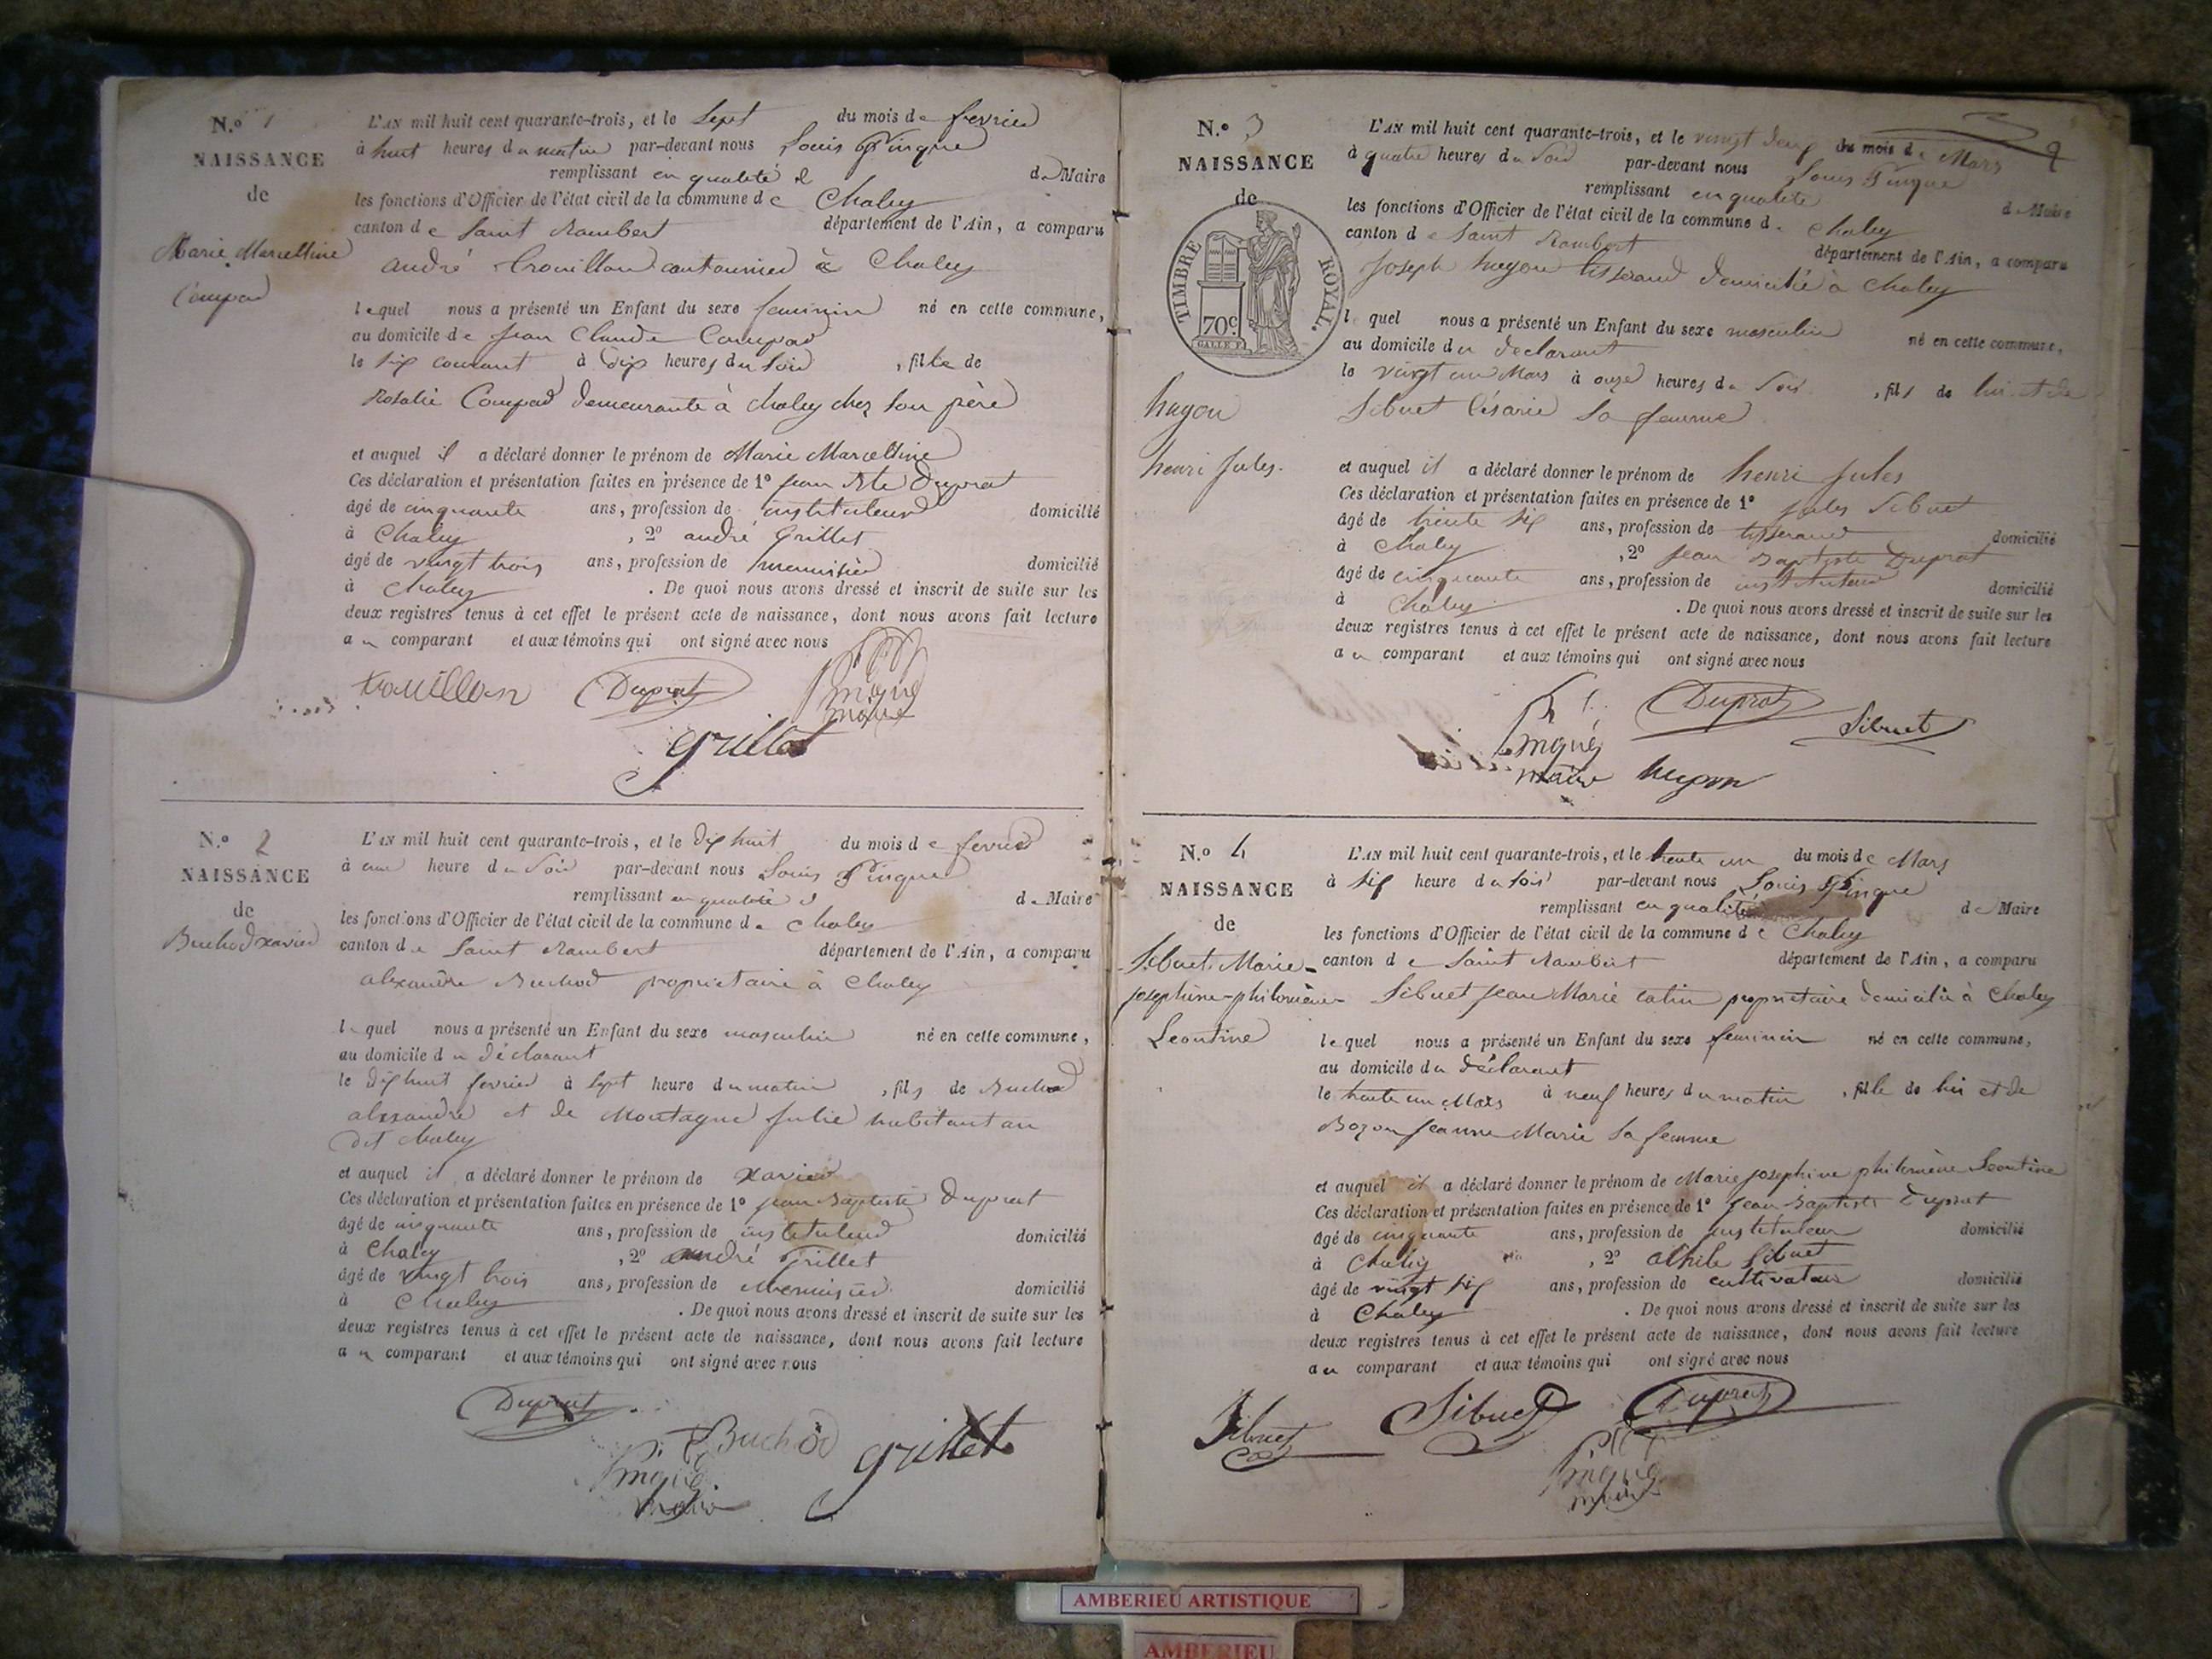 N.o 1
NAISSANCE
de
Marie Marcelline
Compad
L'AN mil huit cent quarante-trois, et le Sept du mois de fevrier
à huit heures du matin par-devant nous Louis Pingue
remplissant en qualité de Maire
les fonctions d'Officier de l'état civil de la commune de Chaley
canton de Saint Rambert département de l'Ain, a comparu
andré Trouillon cantonnier à Chaley
lequel nous a présenté un Enfant du sexe feminin né en cette commune,
au domicile de jean Claude Compad
le six courant à dix heures du soir , fille de
Rosalie Compad demeurante à chaley chez son père
et auquel il a déclaré donner le prénom de Marie Marcelline
Ces déclaration et présentation faites en présence de 1º jean Bte Duprat
âgé de cinquante ans, profession de instituteur domicilié
à Chaley , 2º andré Grillet
âgé de vingt trois ans, profession de menuisier domicilié
à Chaley . De quoi nous avons dressé et inscrit de suite sur les
deux registres tenus à cet effet le présent acte de naissance, dont nous avons fait lecture
au comparant et aux témoins qui ont signé avec nous
trouillon Duprat Pingue
maire
grillet
N.o 2
NAISSANCE
de
Buchod xavier
L'AN mil huit cent quarante-trois, et le dix huit du mois de fevrier
à une heure du soir par-devant nous Louis Pingue
remplissant en qualité de Maire
les fonctions d'Officier de l'état civil de la commune de Chaley
canton de Saint Rambert département de l'Ain, a comparu
alexandre Buchod proprietaire à Chaley
lequel nous a présenté un Enfant du sexe masculin né en cette commune,
au domicile du déclarant
le dix huit fevrier à sept heure du matin , fils de Buchod
alexandre et de Montagne julie habitant au
dit chaley
et auquel il a déclaré donner le prénom de xavier
Ces déclaration et présentation faites en présence de 1º jean Baptiste Duprat
âgé de cinquante ans, profession de instituteur domicilié
à Chaley , 2º andré Grillet
âgé de vingt trois ans, profession de Menuisier domicilié
à Chaley . De quoi nous avons dressé et inscrit de suite sur les
deux registres tenus à cet effet le présent acte de naissance, dont nous avons fait lecture
au comparant et aux témoins qui ont signé avec nous
Duprat
Buchod grillet
Pingue
maire
N.o 3
NAISSANCE
de
TIMBRE ROYAL.
70c
hugon
henri jules.
L'AN mil huit cent quarante-trois, et le vingt deux du mois de Mars
à quatre heures du soir par-devant nous Louis Pingue
remplissant en qualité de Maire
les fonctions d'Officier de l'état civil de la commune de Chaley
canton de Saint Rambert département de l'Ain, a comparu
joseph hugon tisserand domicilié à chaley
lequel nous a présenté un Enfant du sexe masculin né en cette commune,
au domicile du declarant
le vingt un Mars à onze heures du soir , fils de lui et de
Sibuet Césarie sa femme
et auquel il a déclaré donner le prénom de henri jules
Ces déclaration et présentation faites en présence de 1º jules Sibuet
âgé de trente six ans, profession de tisserand domicilié
à Chaley , 2º jean Baptiste Duprat
âgé de cinquante ans, profession de instituteur domicilié
à Chaley . De quoi nous avons dressé et inscrit de suite sur les
deux registres tenus à cet effet le présent acte de naissance, dont nous avons fait lecture
au comparant et aux témoins qui ont signé avec nous
Duprat
Pingue Sibuet
maire hugon
N.o 4
NAISSANCE
de
Sibuet Marie-
josephine-philomène-
Leontine
L'AN mil huit cent quarante-trois, et le trente un du mois de Mars
à six heure du soir par-devant nous Louis Pingue
remplissant en qualité de Maire
les fonctions d'Officier de l'état civil de la commune de Chaley
canton de Saint Rambert département de l'Ain, a comparu
Sibuet jean Marie catin proprietaire domicilié à Chaley
lequel nous a présenté un Enfant du sexe feminin né en cette commune,
au domicile du déclarant
le trente un Mars à neuf heures du matin , fille de lui et de
Bozon jeanne Marie sa femme
et auquel il a déclaré donner le prénom de Marie josephine philomène Leontine
Ces déclaration et présentation faites en présence de 1º jean Baptiste Duprat
âgé de cinquante ans, profession de instituteur domicilié
à Chaley , 2º Sibuet
âgé de vingt six ans, profession de cultivateur domicilié
à Chaley . De quoi nous avons dressé et inscrit de suite sur les
deux registres tenus à cet effet le présent acte de naissance, dont nous avons fait lecture
au comparant et aux témoins qui ont signé avec nous
Sibuet Sibuet Duprat
Pingue
maire
AMBERIEU ARTISTIQUE
AMBERIEU